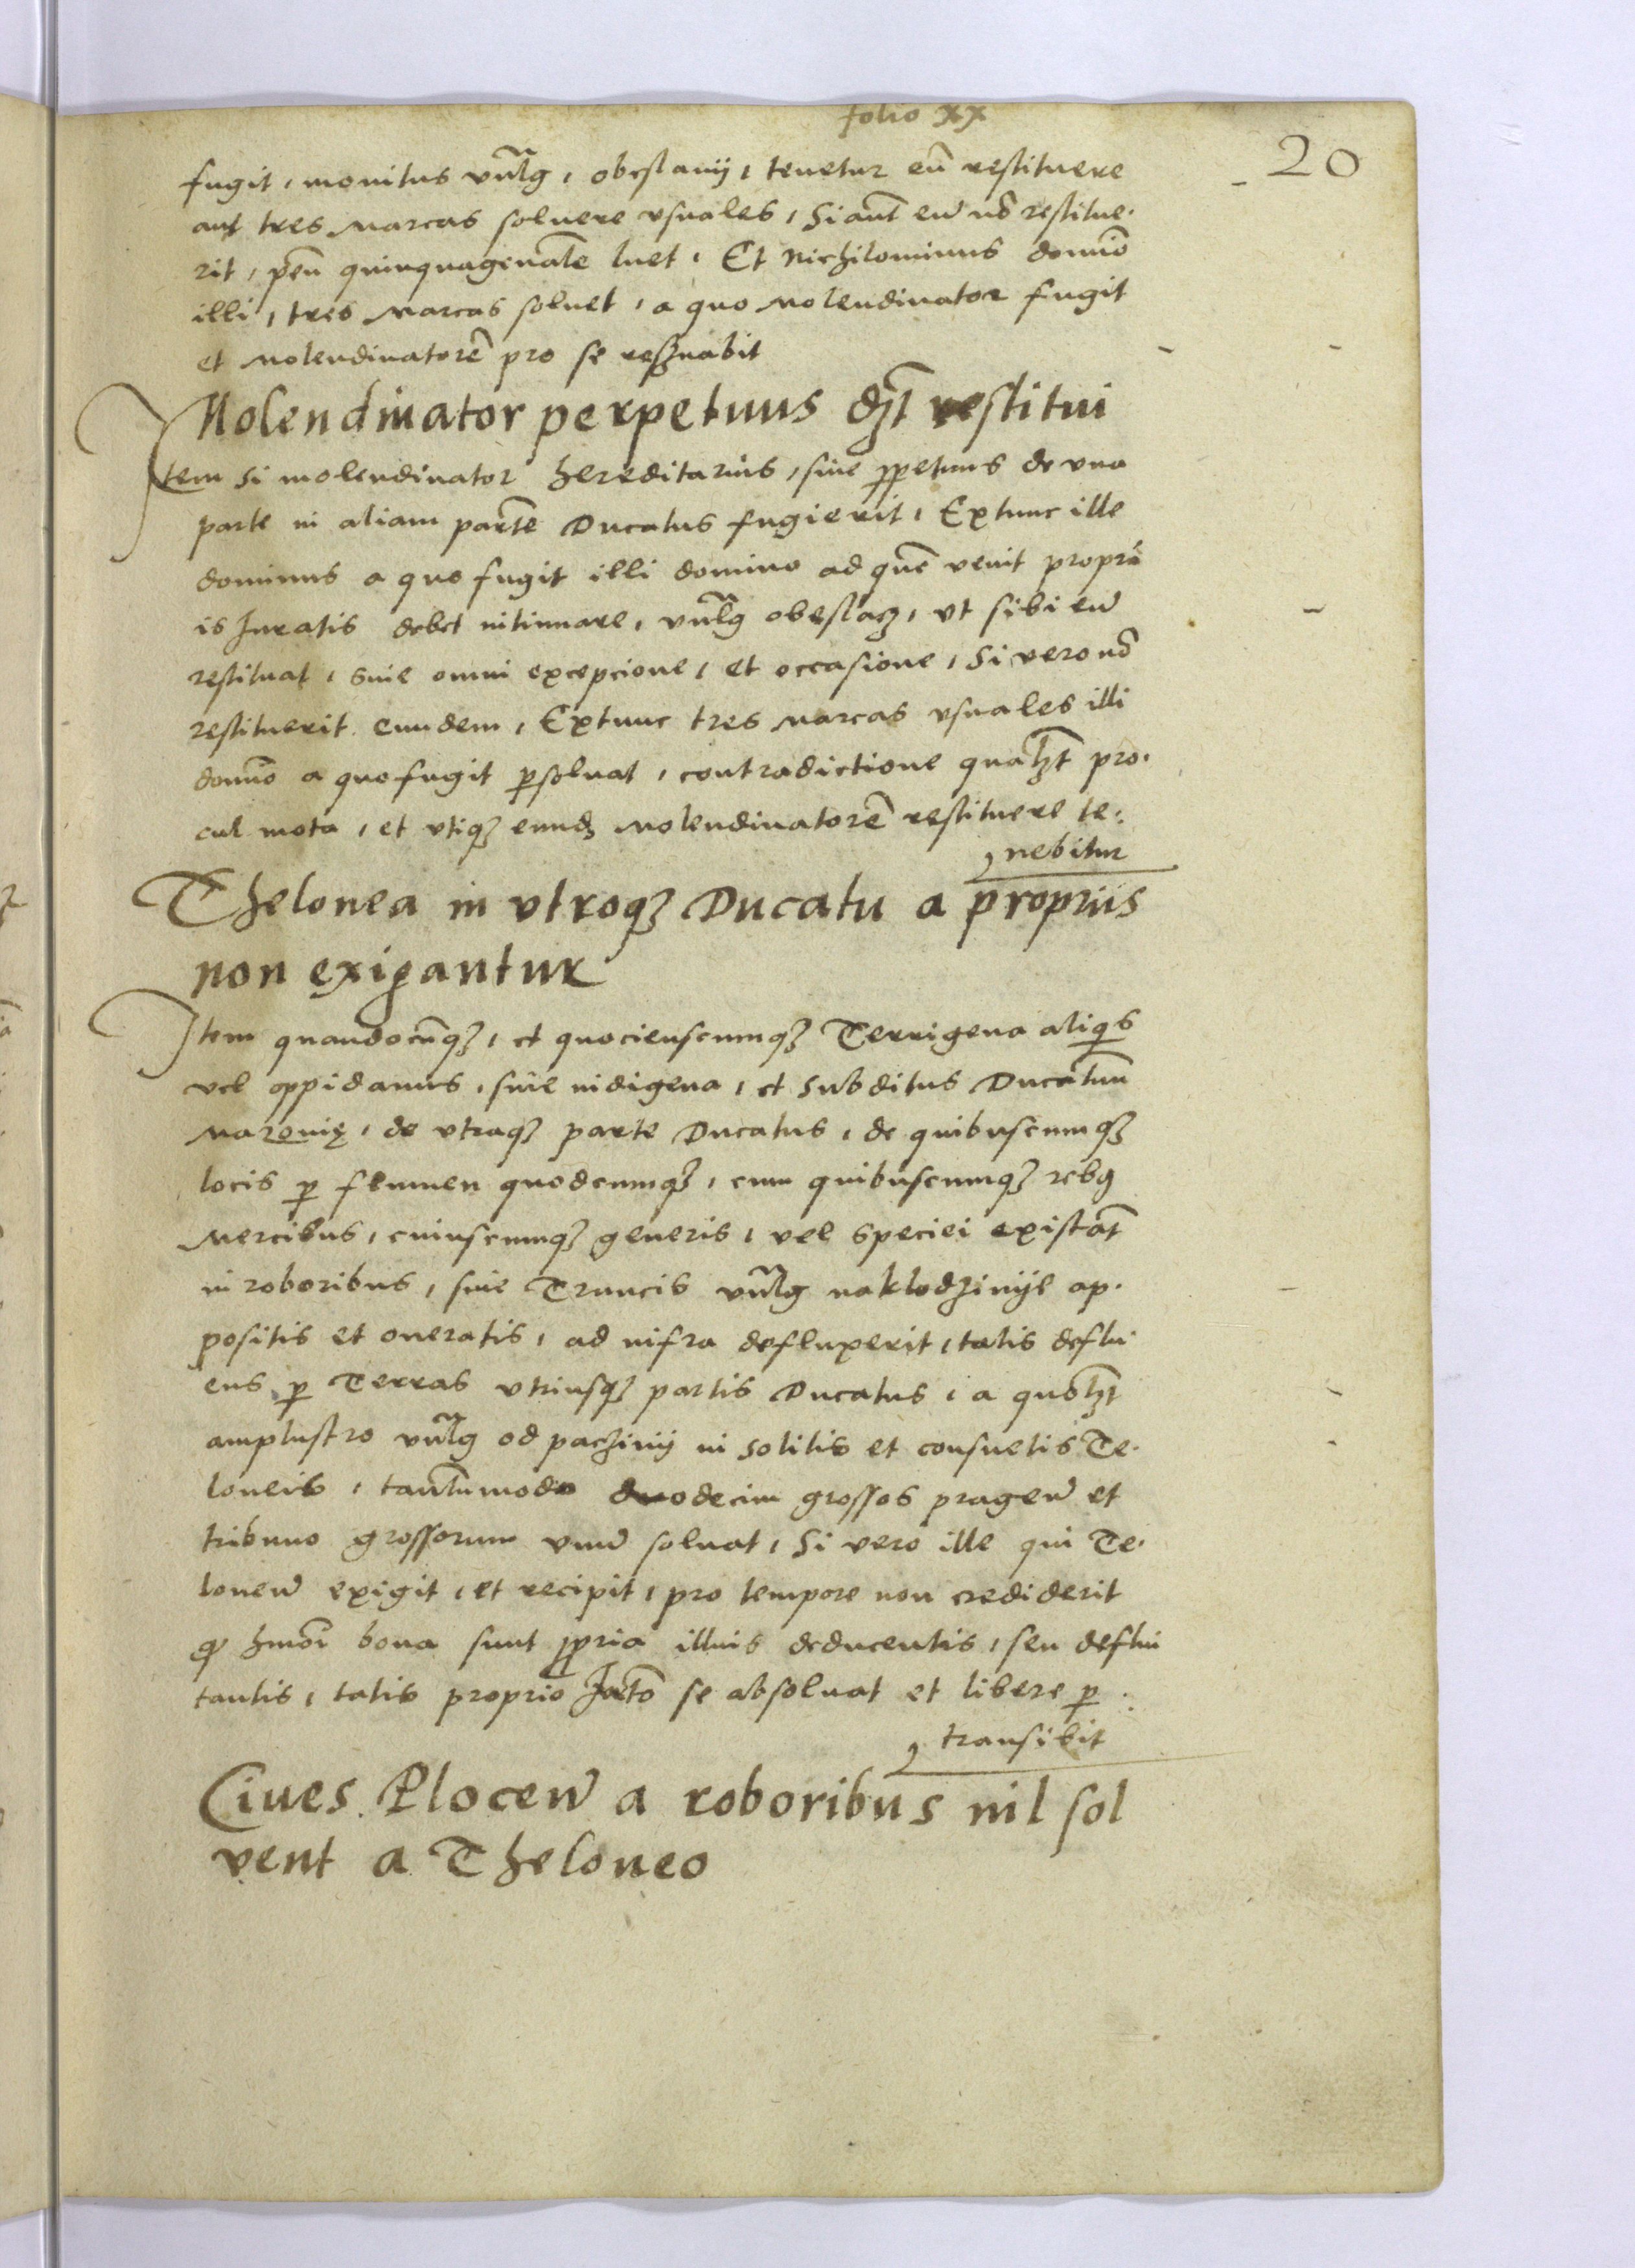 folio xx
20
fugit, monitus vulg, obeslanij, tenetur eū restituere
aut tres Marcas soluere vsuales, Si aūt eū nō restitue.
rit, pēn quinquagenalē luet, Et Nichilominus domīo
illi, tres Marcas soluet, a quo Molendinator fugit
et Molendinatorē pro se reseruabit
Molendinator perpetuus dꝫt restitui
Item Si molendinator hereditarius, siue ꝑpetuus de vna
parte in aliam partē Ducatus fugierit, Extunc ille
dominus a quo fugit illi domino ad quē venit propri
is Juratis debet intimare, vulg obeslacz, vt sibi eū
restituat, sine omni excepcione, et occasione, Si vero nō
restituerit eundem, Extunc tres Marcas vsuales illi
domīo a quo fugit ꝑsoluat, contradictione qualꝫt pro.
cul mota, et vtiqꝫ eundꝫ Molendinatorē restituere te:
nebitur
Thelonea in vtroqꝫ Ducatu a propriis
non exigantur
Item quandocūqꝫ, et quocienscumqꝫ Terrigena aliqis
vel oppidanus, siue indigena, et Subditus Ducatuū
Mazouię, de vtraqꝫ parte Ducatus, de quibuscumqꝫ
locis ꝑ flumen quodcumqꝫ, cum quibuscumqꝫ rebꝰ
Mercibus, cuiuscumqꝫ generis, vel speciei existāt
in roboribus, siue Truncis vulg naklodzinije ap.
positis et oneratis, ad infra defluxerit, talis deflu.
ens ꝑ Terras vtriusqꝫ partis Ducatus, a quolꝫt
amplustro vulg od paczinij in solitis et consuetis Te.
loneis, tantūmodo duodecim grossos pragen̄ et
tribuno grossorum vnū soluat, Si vero ille qui Te.
loneū exigit, et recipit, pro tempore non crediderit
qꝫ hmōi bona sunt ꝓpria illius deducentis, seu deflui
tantis, talis proprio Jurto se absoluat et libere ꝑ:
transibit
Ciues Plocen̄ a roboribus nil sol
vent a Theloneo